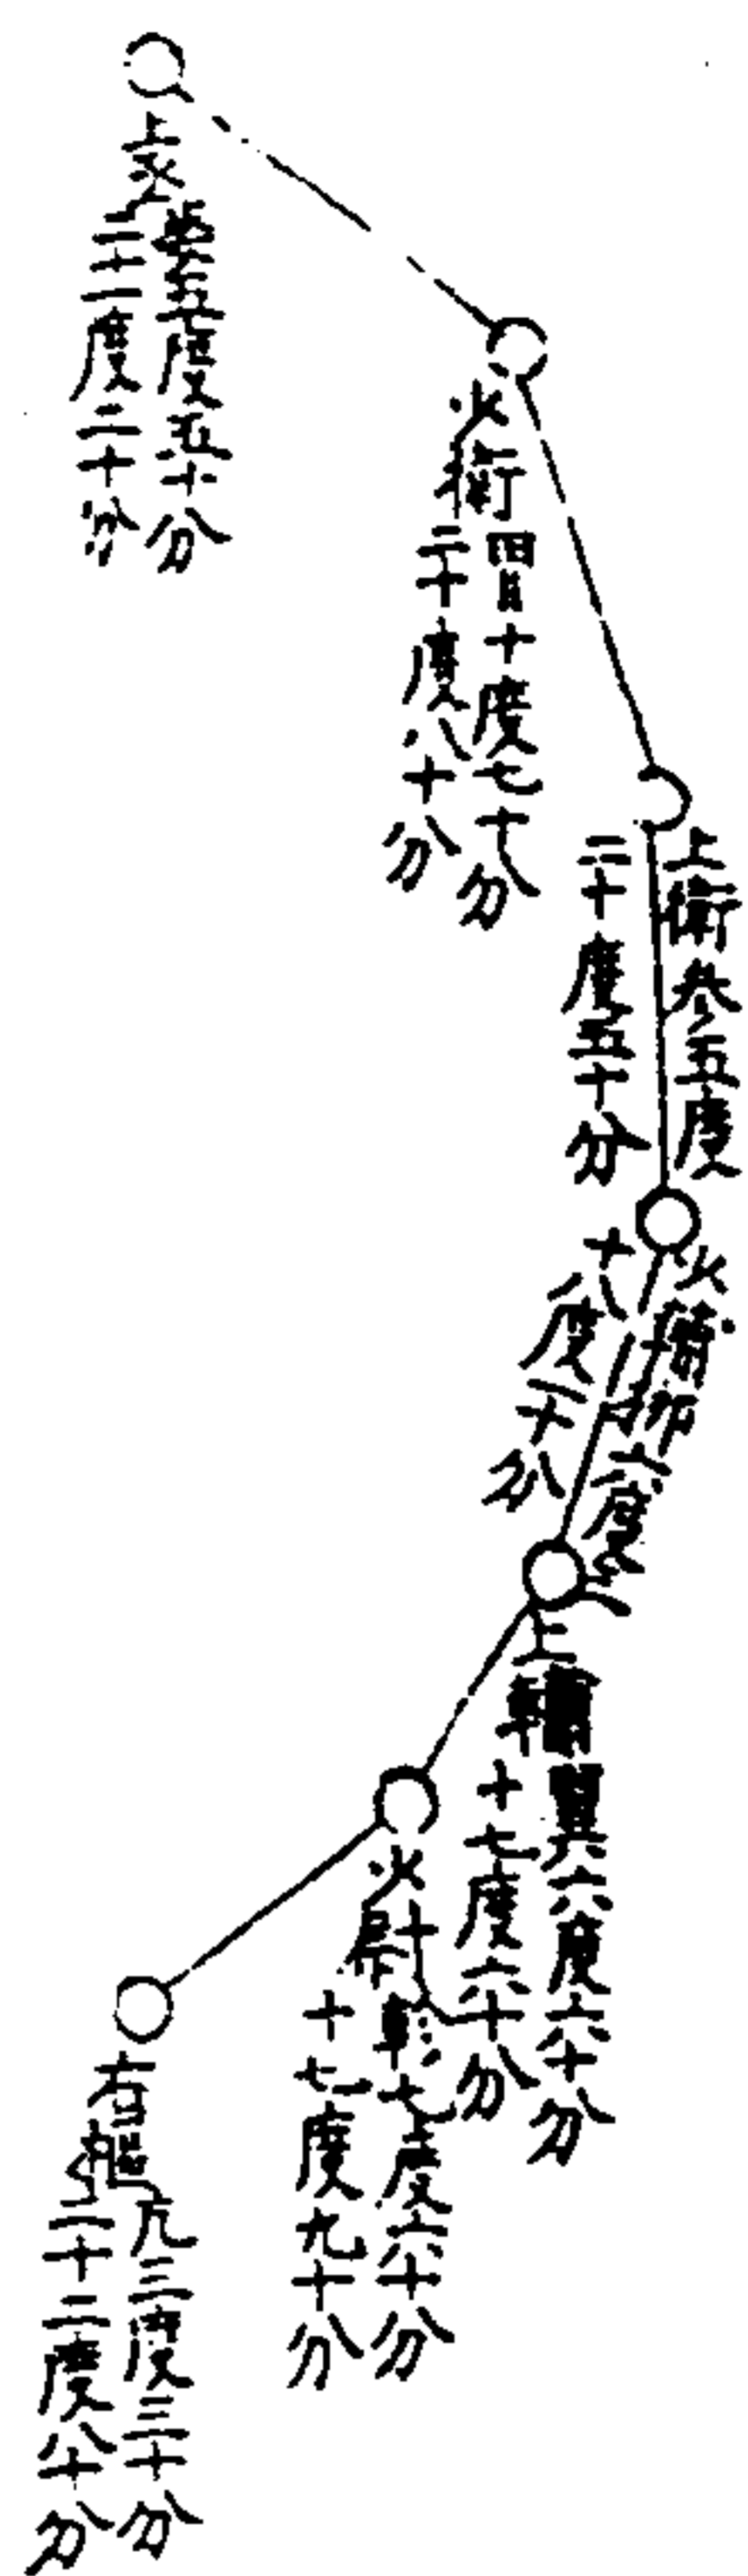 上丞
五度五十分
二十一度二十分
少衛
十度七十分
二十度八十分
上衛參五度
二十度五十分
少輔柳六度
十八度一十分
上輔
翼六度六十分
十七度六十分
少尉
軫七度六十分
十七度九十分
右樞
亢三度三十分
二十二度八十分